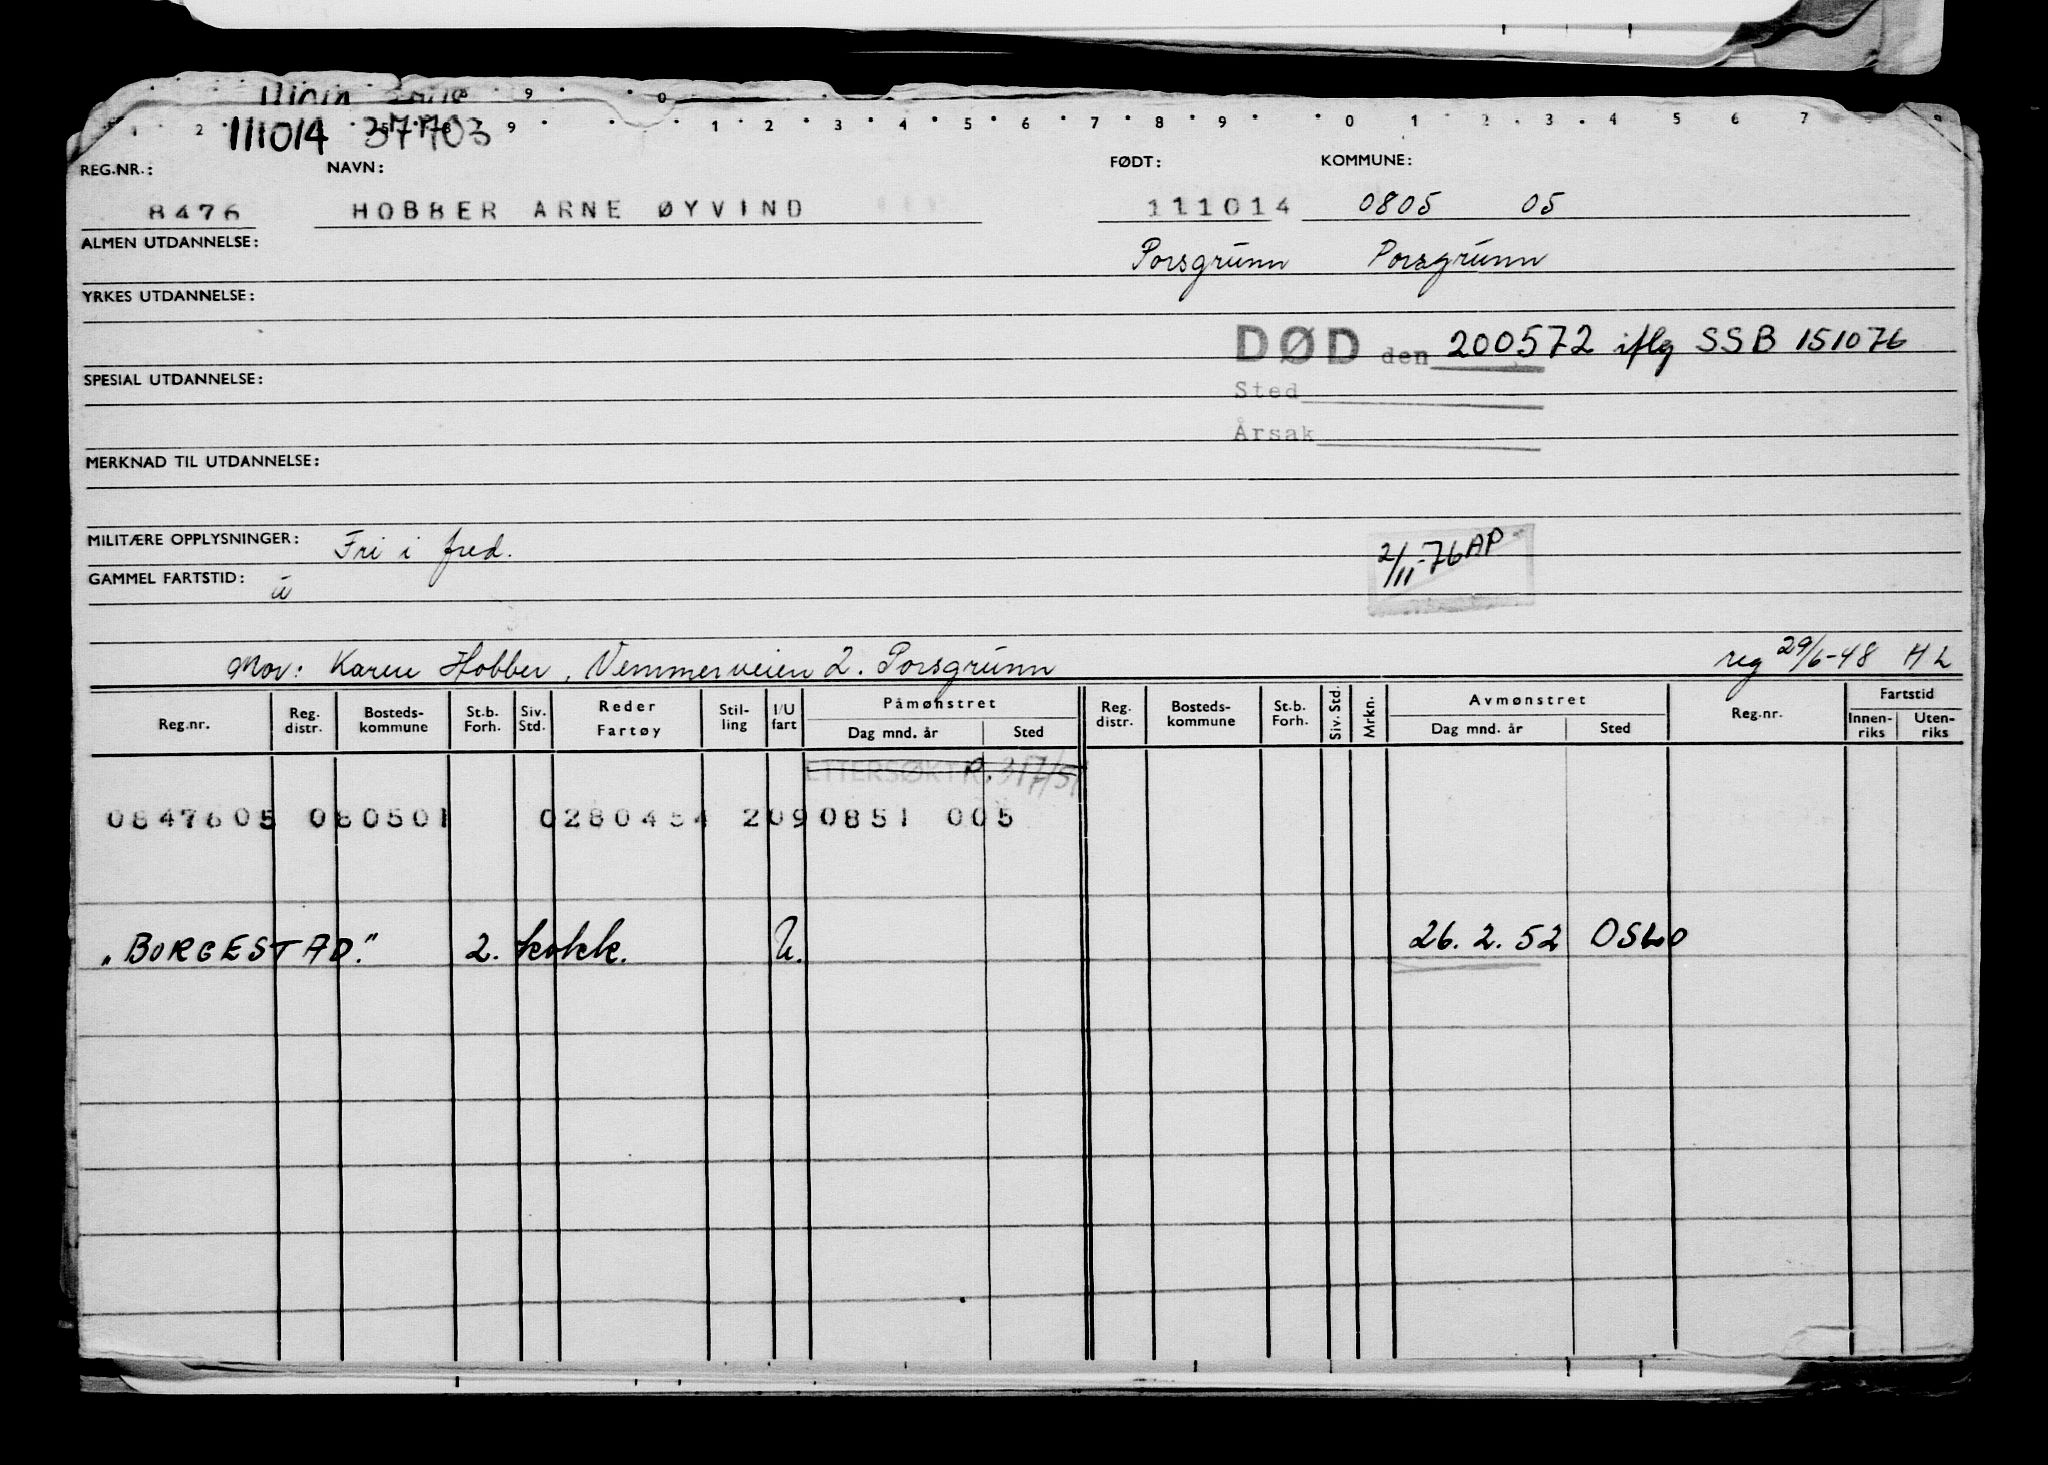 111014 37703
REG.NR.: NAVN: FØDT: KOMMUNE:
8476 HOBBER ARNE ØYVIND 111014 0805 05
ALMEN UTDANNELSE: Porsgrunn Porsgrunn
YRKES UTDANNELSE:
DØD den 200572 iflg SSB 151076
SPESIAL UTDANNELSE: Sted
Årsak
MERKNAD TIL UTDANNELSE:
MILITÆRE OPPLYSNINGER: Fri i fred. 2/11-76 AP
GAMMEL FARTSTID: u
Mor: Karen Hobber, Vemmerveien 2. Porsgrunn reg 29/6-48 HL
Reg.nr. Reg. distr. Bosteds-kommune St.b. Forh. Siv. Std. Reder Fartøy Stil-ling I/U fart Påmønstret Dag mnd. år Sted Reg. distr. Bosteds-kommune St.b. Forh. Siv. Std. Mrkn. Avmønstret Dag mnd. år Sted Reg.nr. Fartstid Innen-riks Uten-riks
ETTERSØKT
0847605 080501 0280454 2090851 005
"BORGESTAD." 2. kokk. U. 26. 2. 52 OSLO